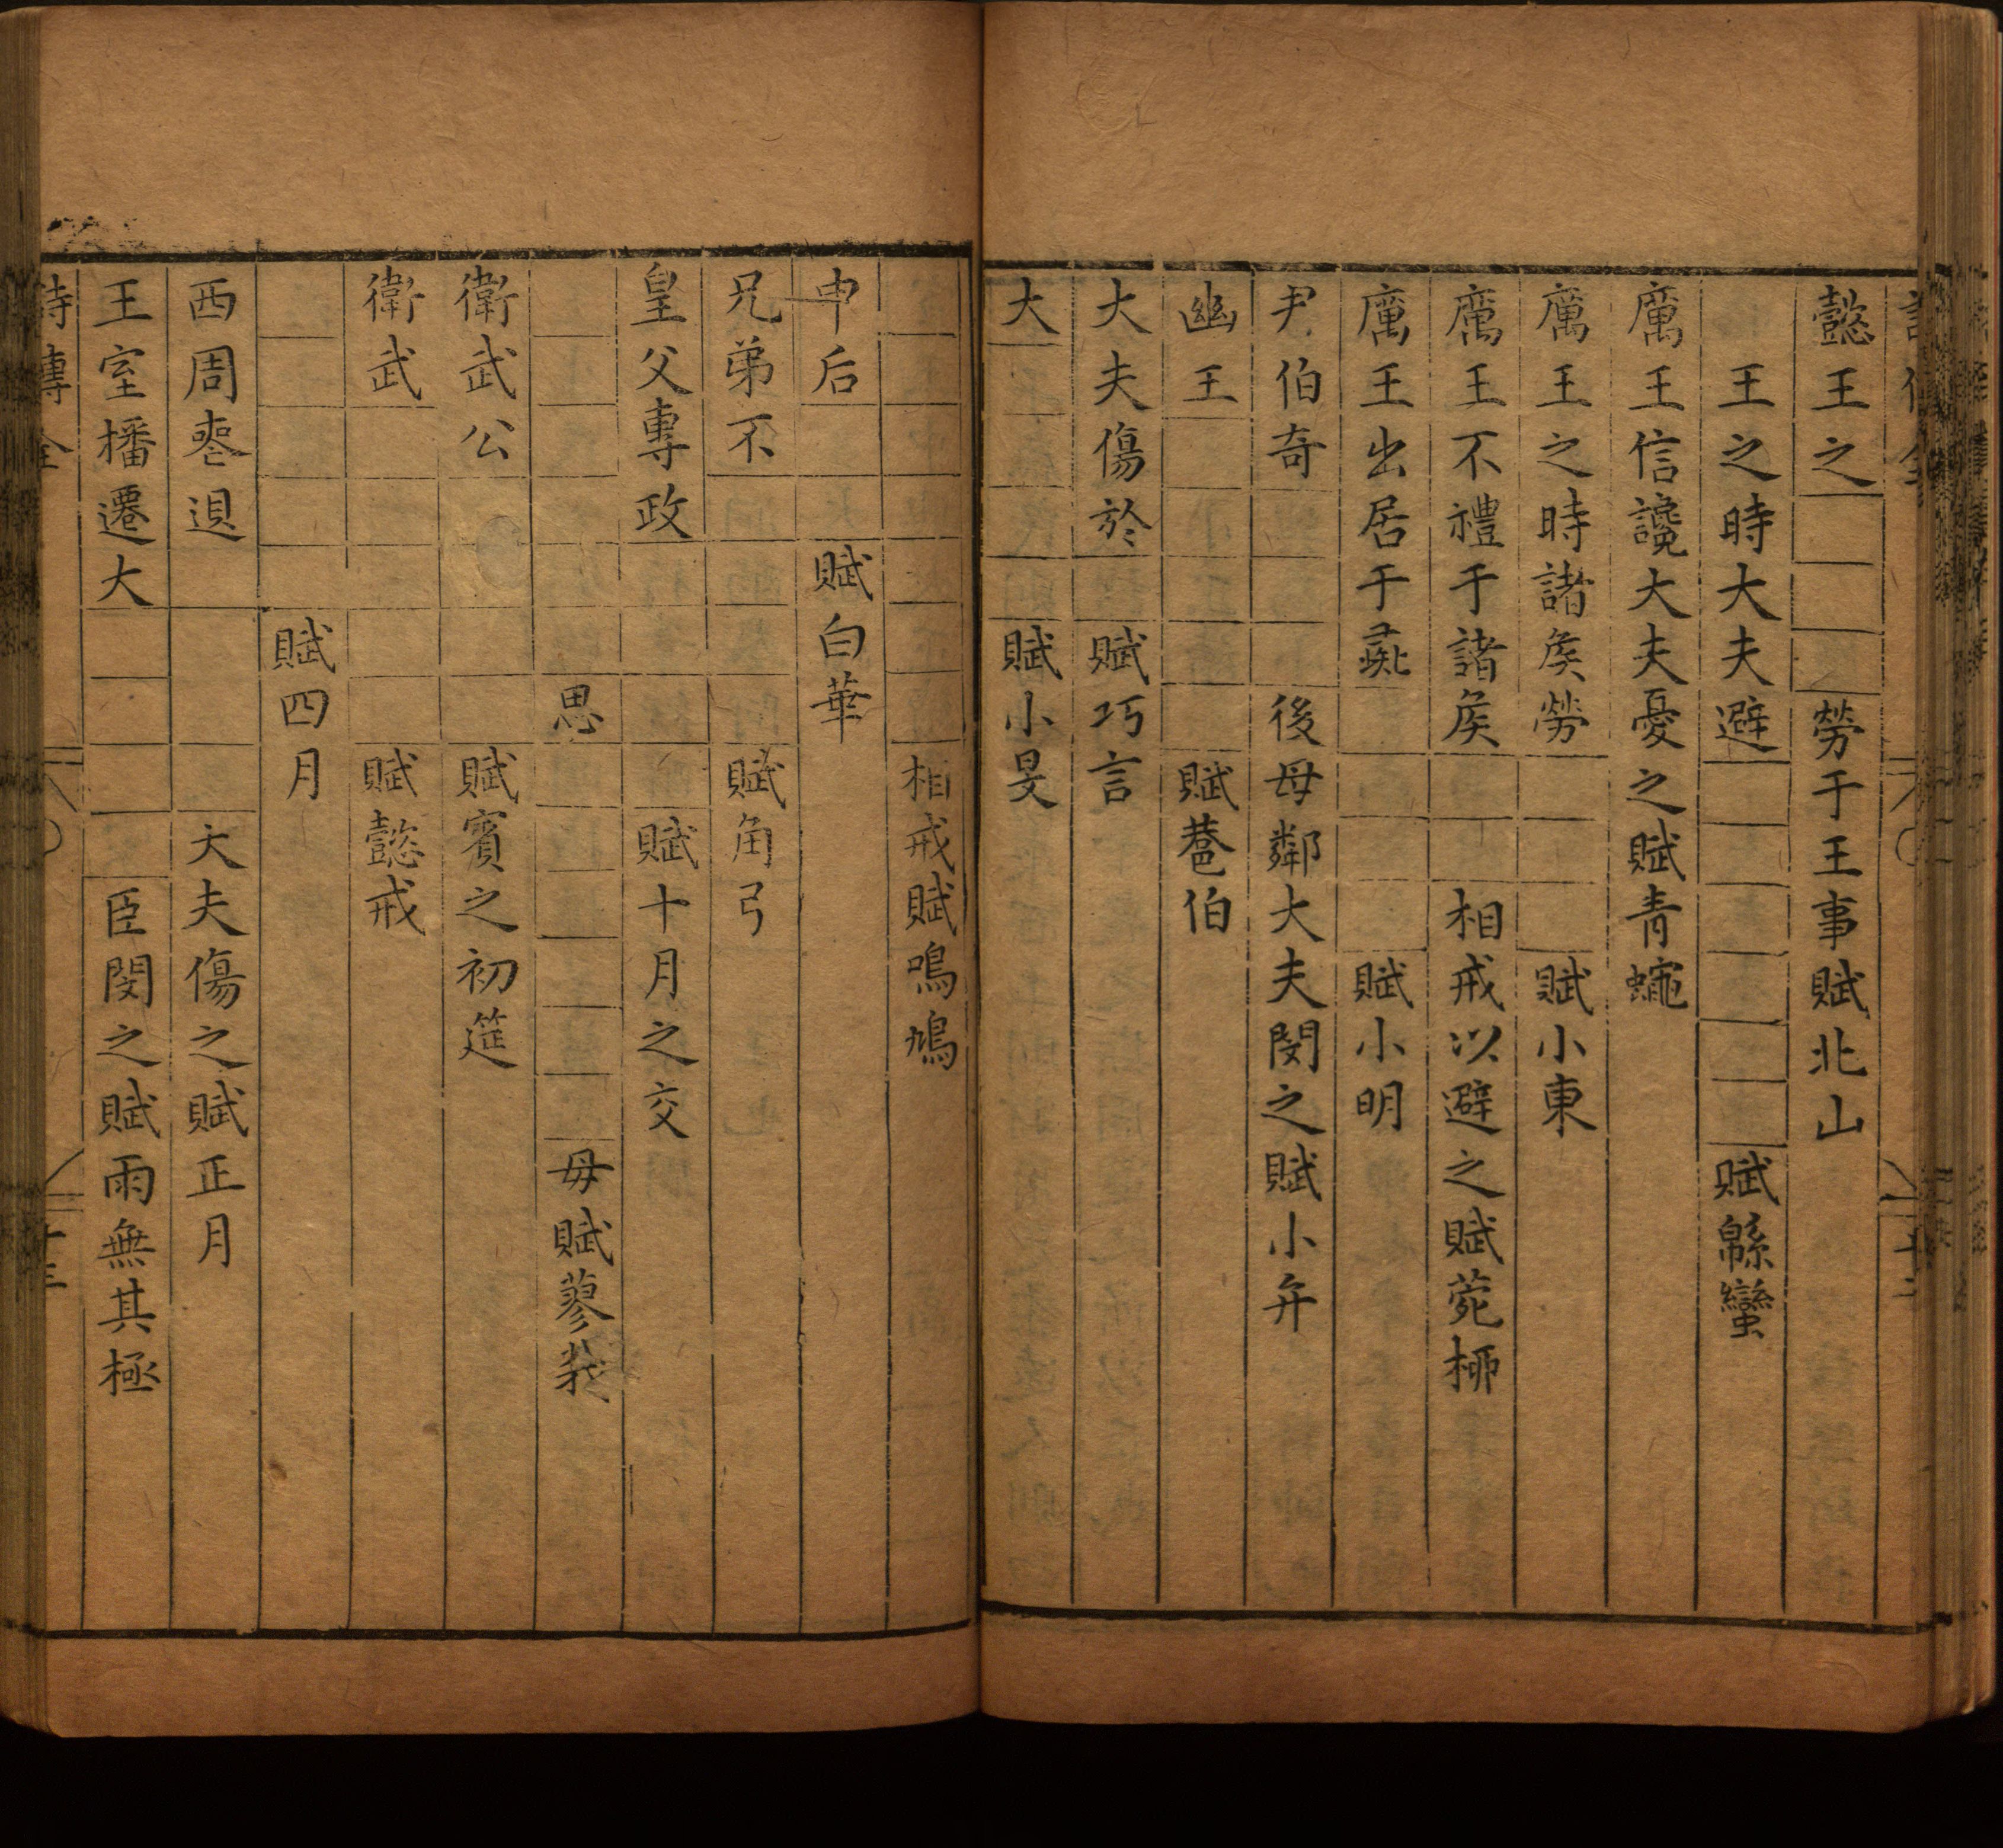 懿王之□□□勞于王事賦北山
□王之時大夫避□□□□□□賦緜蠻
厲王信讒大夫憂之賦青蠅
厲王之時諸矦勞□□□賦小東
厲王不禮于諸矦□□相戒以避之賦菀栁
厲王出居于彘□□□□賦小明
尹伯奇□□□後母鄰大夫閔之賦小弁
幽王□□□□□賦巷伯
大夫傷於□賦巧言
大□□□□賦小旻
□□□□□□□相戒賦鳴鳩
申后□□賦白華
兄弟不□□□□賦角弓
皇父專政□□□□賦十月之交
□□□□□□思□□□□□□母賦蓼莪
衛武公□□□□賦賓之初筵
衛武□□□□□賦懿戒
□□□□□賦四月
西周□□□□大夫傷之賦正月
王室播遷大□□□□臣閔之賦雨無其極
詩傳全
十三